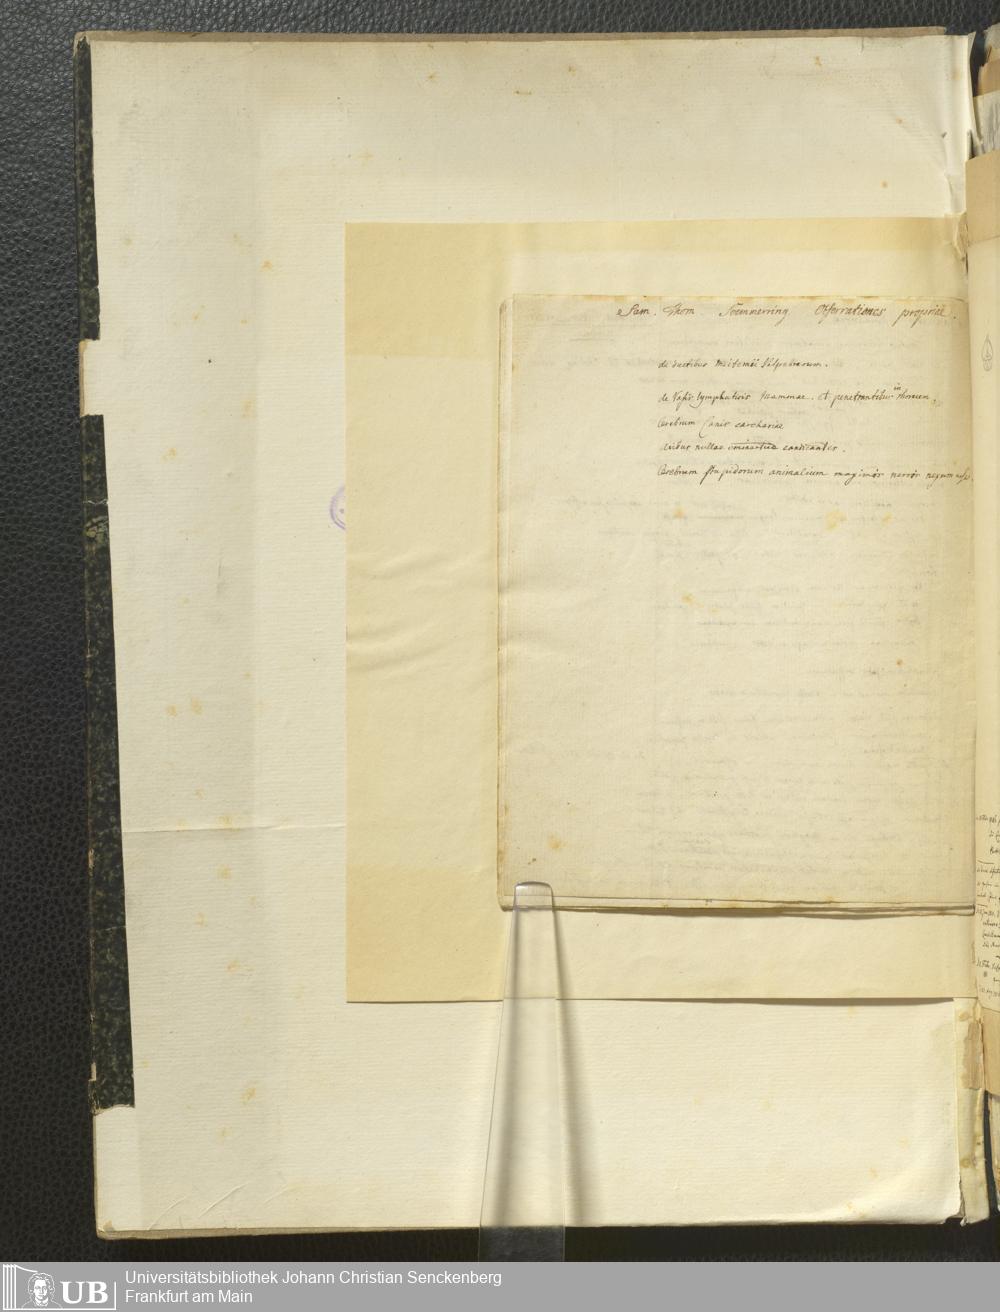 Sam. Thom Soemmerring Observationes propriae.
de ductibus Meibomii Palpebrarum.
de Vasis lymphaticis mammae. et penetrantibus in thoracem.
Cerebrum Canis carchariae
avibus nullae eminentiae candicantes.
Cerebrum stupidorum animalium maximor nervor
Universitätsbibliothek Johann Christian Senckenberg
Frankfurt am Main
UB